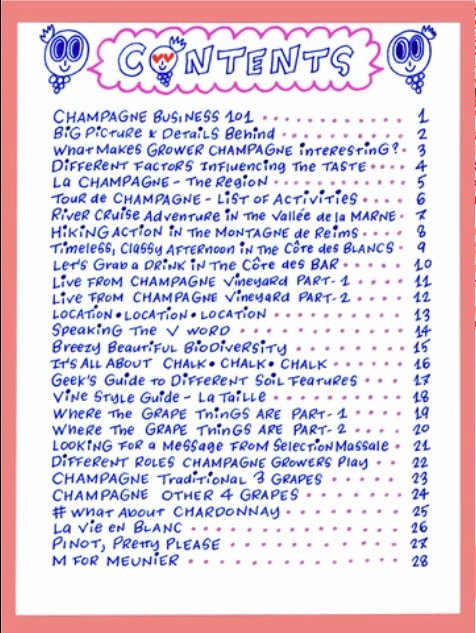 CONTENTS
CHAMPAGNE BUSINESS 101 1
BIG PICTURE & DETAILS BEHIND 2
WHAT MAKES GROWER CHAMPAGNE INTERESTING? 3
DIFFERENT FACTORS INFLUENCING THE TASTE 4
LA CHAMPAGNE - THE REGION 5
TOUR DE CHAMPAGNE - LIST OF ACTIVITIES 6
RIVER CRUISE ADVENTURE IN THE VALLÉE de la MARNE 7
HIKING ACTION IN THE MONTAGNE de REIMS 8
TIMELESS, CLASSY AFTERNOON IN THE CÔTE des BLANCS 9
LET'S GRAB a DRINK IN THE CÔTE des BAR 10
LIVE FROM CHAMPAGNE VINEYARD PART-1 11
LIVE FROM CHAMPAGNE VINEYARD PART-2 12
LOCATION • LOCATION • LOCATION 13
SPEAKING THE V WORD 14
BREEZY BEAUTIFUL BIODIVERSITY 15
IT'S ALL ABOUT CHALK • CHALK • CHALK 16
GEEK'S GUIDE TO DIFFERENT SOIL FEATURES 17
VINE STYLE GUIDE - LA TAILLE 18
WHERE THE GRAPE THINGS ARE PART-1 19
WHERE THE GRAPE THINGS ARE PART-2 20
LOOKING FOR a MESSAGE FROM SELECTION MASSALE 21
DIFFERENT ROLES CHAMPAGNE GROWERS PLAY 22
CHAMPAGNE TRADITIONAL 3 GRAPES 23
CHAMPAGNE OTHER 4 GRAPES 24
# WHAT ABOUT CHARDONNAY 25
LA VIE EN BLANC 26
PINOT, PRETTY PLEASE 27
M FOR MEUNIER 28